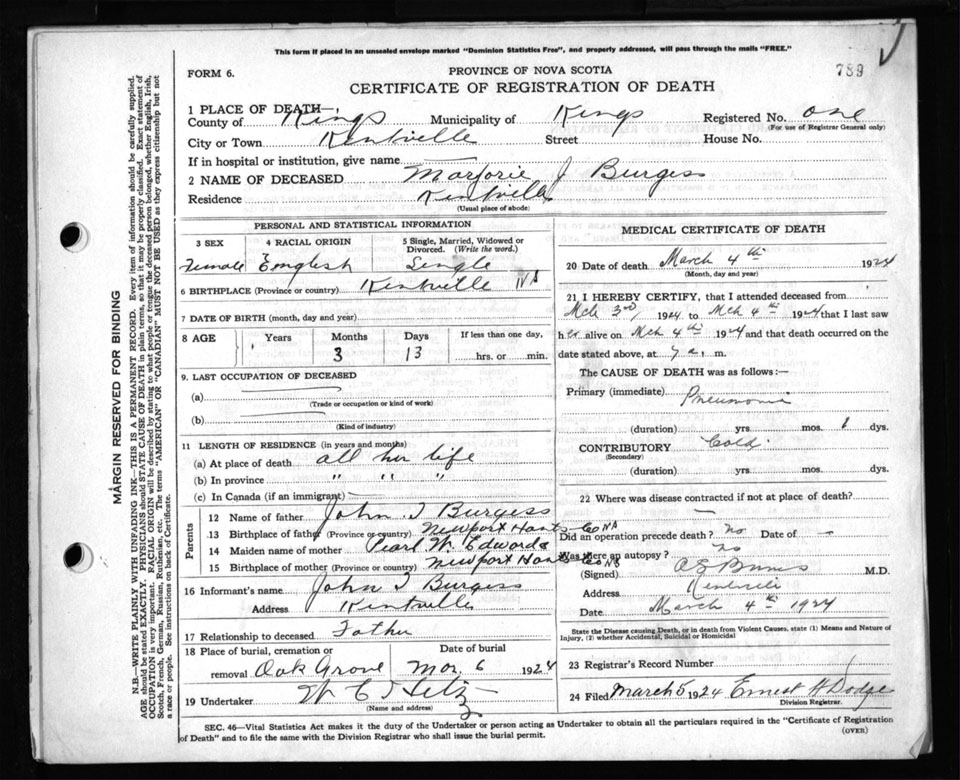 This form if placed in an unsealed envelope marked "Dominion Statistics Free", and properly addressed, will pass through the mails "FREE."
789
FORM 6.
PROVINCE OF NOVA SCOTIA
CERTIFICATE OF REGISTRATION OF DEATH
1 PLACE OF DEATH—,
County of Kings Municipality of Kings Registered No. one
(For use of Registrar General only)
City or Town Kentville Street House No.
If in hospital or institution, give name
2 NAME OF DECEASED Marjorie J Burgess
Residence Kentville
(Usual place of abode)
PERSONAL AND STATISTICAL INFORMATION
3 SEX 4 RACIAL ORIGIN 5 Single, Married, Widowed or Divorced. (Write the word.)
Female English Single
6 BIRTHPLACE (Province or country) Kentville NS
7 DATE OF BIRTH (month, day and year)
8 AGE Years Months Days If less than one day,
3 13 hrs. or min.
9. LAST OCCUPATION OF DECEASED
(a)
(Trade or occupation or kind of work)
(b)
(Kind of industry)
11 LENGTH OF RESIDENCE (in years and months)
(a) At place of death all her life
(b) In province " " "
(c) In Canada (if an immigrant) —
Parents
12 Name of father John I Burgess
13 Birthplace of father (Province or country) Newport Hants Co NS
14 Maiden name of mother Pearl W. Edwards
15 Birthplace of mother (Province or country) Newport Hants Co NS
16 Informant's name John I Burgess
Address Kentville
17 Relationship to deceased Father
18 Place of burial, cremation or Date of burial
removal Oak Grove Mar. 6 1924
19 Undertaker W C
(Name and address)
MEDICAL CERTIFICATE OF DEATH
20 Date of death March 4th 1924
(Month, day and year)
21 I HEREBY CERTIFY, that I attended deceased from
Mch 3rd, 1924 to Mch 4th 1924 that I last saw
her alive on Mch 4th 1924 and that death occurred on
date stated above, at 7 a. m.
The CAUSE OF DEATH was as follows:—
Primary (immediate) Pneumonia
(duration) yrs. mos. 1 dys.
CONTRIBUTORY Cold.
(Secondary)
(duration) yrs. mos. dys.
22 Where was disease contracted if not at place of death?
—
Did an operation precede death? no Date of —
Was there an autopsy? no
(Signed) M.D.
Address Kentville
Date March 4th 1924
State the Disease causing Death, or in death from Violent Causes, state (1) Means and Nature of Injury, (2) whether Accidental, Suicidal or Homicidal
23 Registrar's Record Number
24 Filed March 5 1924 Ernest H Dodge
Division Registrar.
SEC. 46—Vital Statistics Act makes it the duty of the Undertaker or person acting as Undertaker to obtain all the particulars required in the "Certificate of Registration
of Death" and to file the same with the Division Registrar who shall issue the burial permit.
(OVER)
MARGIN RESERVED FOR BINDING
N.B.—WRITE PLAINLY WITH UNFADING INK—THIS IS A PERMANENT RECORD. Every item of information should be carefully supplied.
AGE should be stated EXACTLY. PHYSICIANS should STATE CAUSE OF DEATH in plain terms, so that it may be properly classified. Exact statement of
OCCUPATION is very important. RACIAL ORIGIN will be described by stating to what people or tongue the deceased person belonged, whether English, Irish,
Scotch, French, German, Russian, Ruthenian, etc. The terms "AMERICAN" OR "CANADIAN" MUST NOT BE USED as they express citizenship but not
a race or people. See instructions on back of Certificate.